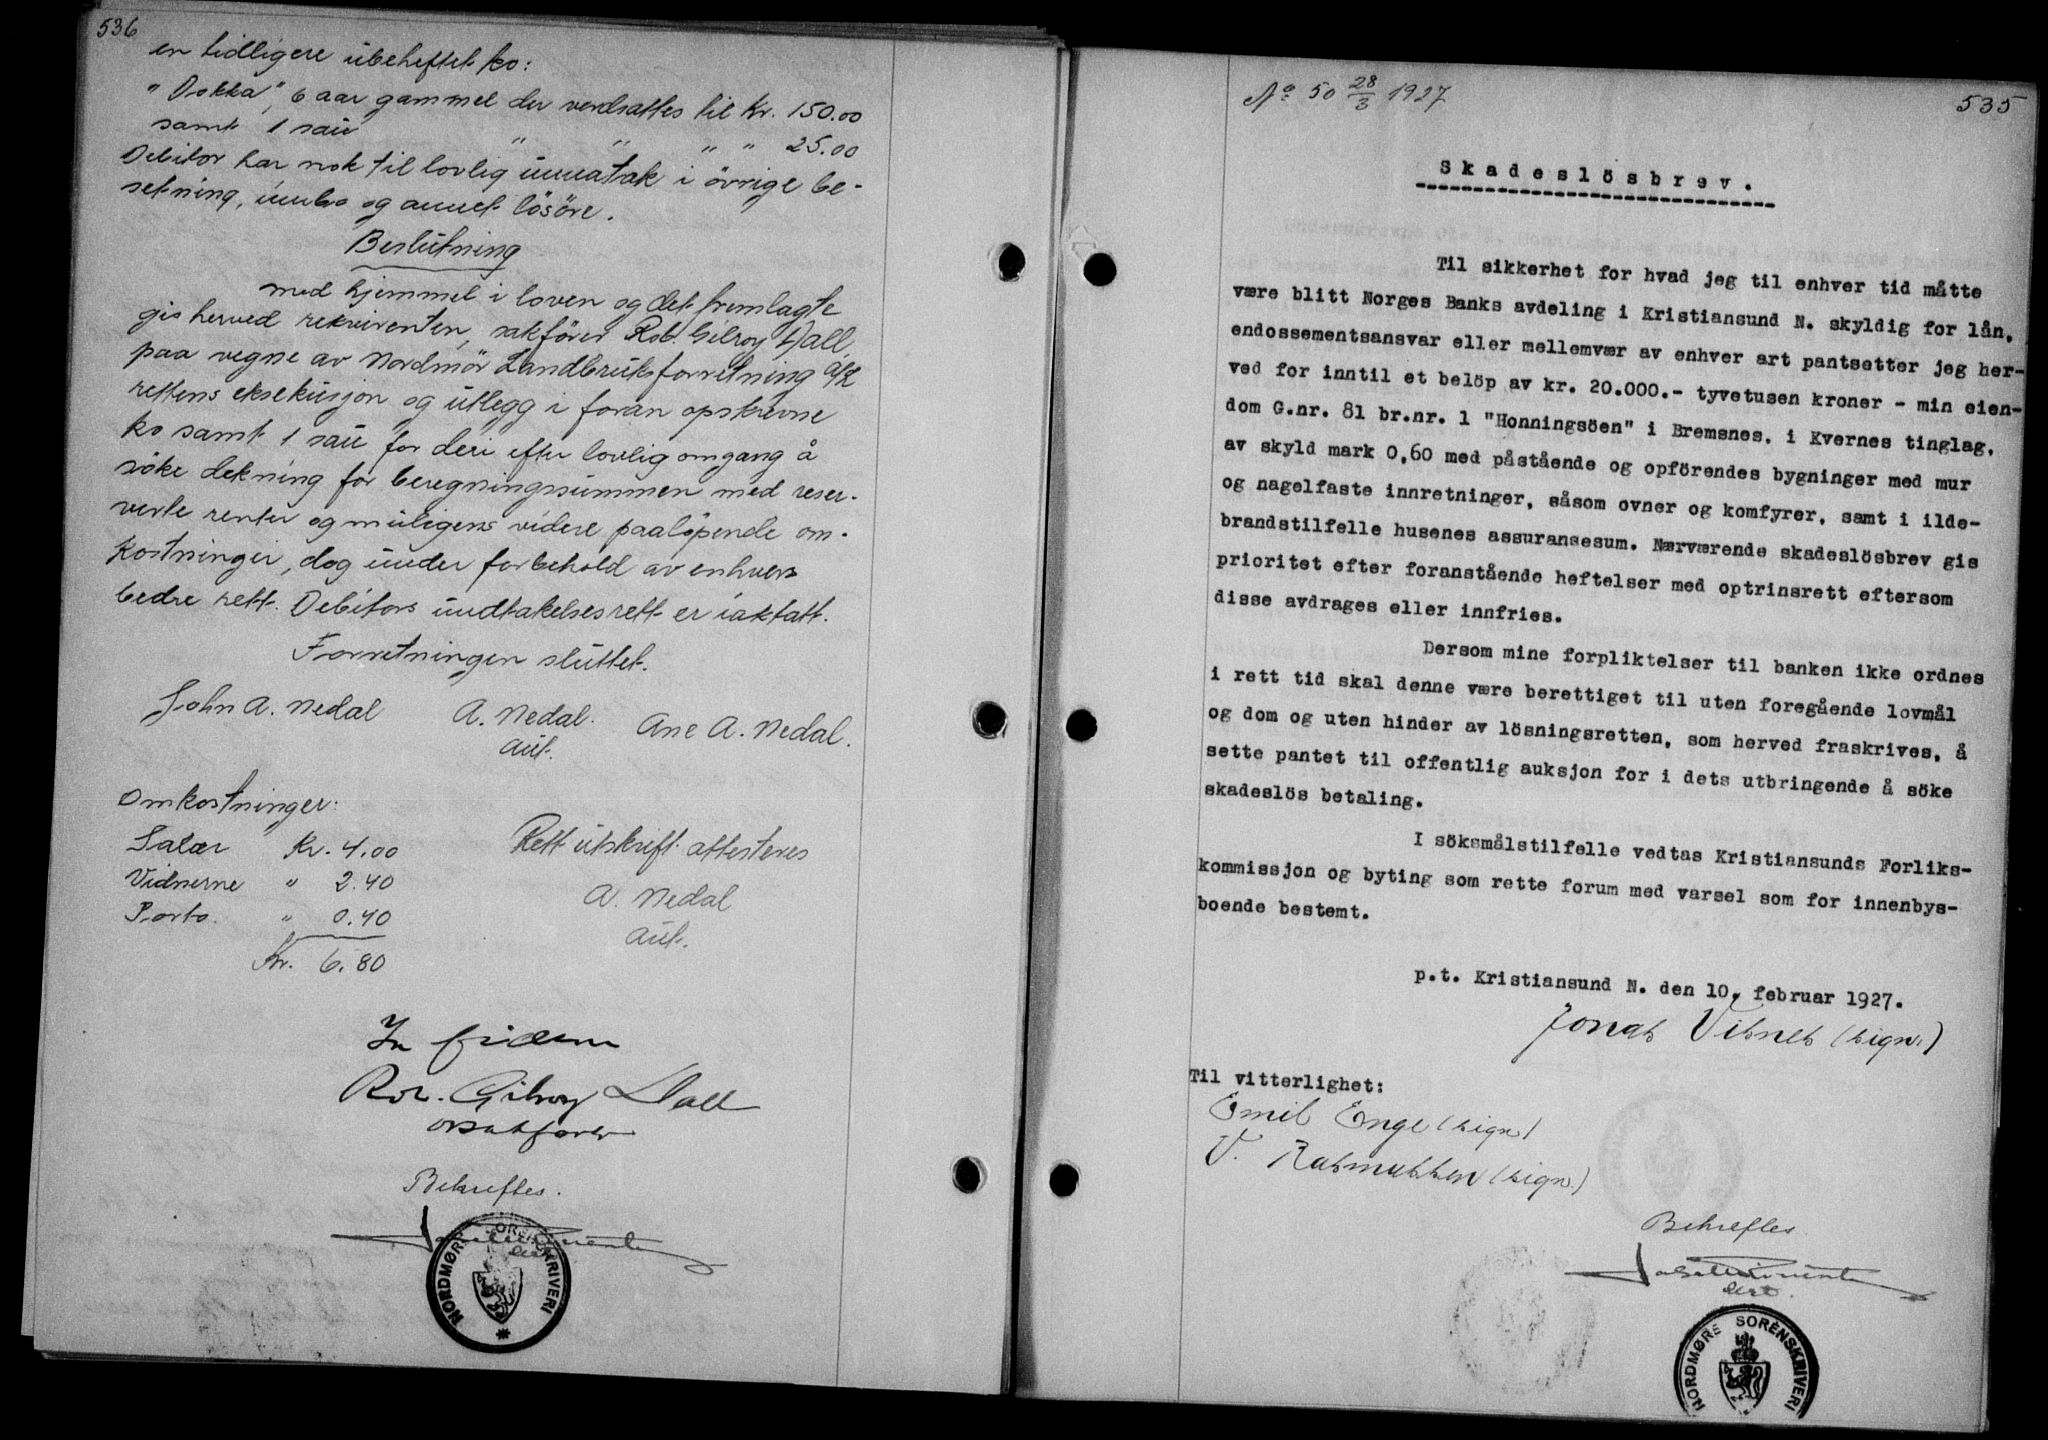 536
en tidligere ubeheftet ko:
"Dokka", 6 aar gammel der verdsattes til Kr. 150.00
samt 1 sau " " " " 25.00
Debitor har nok til lovlig unnatak i övrige be-
setning, innbo og annet lösöre.
Beslutning
med hjemmel i loven og det fremlagte
gis herved rekvirenten, sakförer Rob. Gilroy Dall,
paa vegne av Nordmör Landbruksforretning A/L
rettens eksekusjon og utlegg i foran opskrevne
ko samt 1 sau for deri efter lovlig omgang å
söke dekning for beregningssummen med reser-
verte renter og muligens videre paalöpende om-
kostninger, dog under forbehold av enhvers
bedre rett. Debitors undtakelsesrett er iaktatt.
Forretningen sluttet.
John A. Nedal A. Nedal. Ane A. Nedal.
aut.
Omkostninger:
Salær Kr. 4.00
Vidnerne " 2.40
Porto. " 0.40
Kr. 6.80
Rett utskrift attesteres
A. Nedal
aut.
In fidem
Rob. Gilroy Dall
Bekreftes.
NORDMØRE SORENSKRIVERI
No 50 28/3 1927
535
Skadeslösbrev.
Til sikkerhet for hvad jeg til enhver tid måtte
være blitt Norges Banks avdeling i Kristiansund N. skyldig for lån,
endossementsansvar eller mellemvær av enhver art pantsetter jeg her-
ved for inntil et belöp av kr. 20.000.- tyvetusen kroner - min eien-
dom G.nr. 81 br.nr. 1 "Honningsöen" i Bremsnes, i Kvernes tinglag,
av skyld mark 0,60 med påstående og opförendes bygninger med mur
og nagelfaste innretninger, såsom ovner og komfyrer, samt i ilde-
brandstilfelle husenes assuransesum. Nærværende skadeslösbrev gis
prioritet efter foranstående heftelser med optrinsrett eftersom
disse avdrages eller innfries.
Dersom mine forpliktelser til banken ikke ordnes
i rett tid skal denne være berettiget til uten foregående lovmål
og dom og uten hinder av lösningsretten, som herved fraskrives, å
sette pantet til offentlig auksjon for i dets utbringende å söke
skadeslös betaling.
I söksmålstilfelle vedtas Kristiansunds Forliks-
kommissjon og byting som rette forum med varsel som for innenbys-
boende bestemt.
p.t. Kristiansund N. den 10. februar 1927.
Jonas Vitnes (sign.)
Til vitterlighet:
Emil Enge (sign)
V. Rasmussen (sign.)
Bekreftes
NORDMØRE SORENSKRIVERI